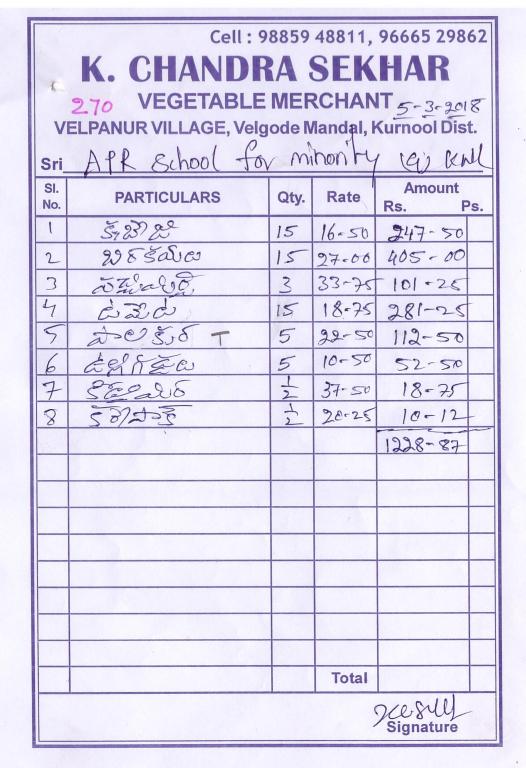 Cell : 98859 48811, 96665 29862
K. CHANDRA SEKHAR
270 VEGETABLE MERCHANT 5-3-2018
VELPANUR VILLAGE, Velgode Mandal, Kurnool Dist.
Sri APR School for minority KNL
Sl. No. PARTICULARS Qty. Rate Amount Rs. Ps.
1 క్యాబేజి 15 16-50 247-50
2 బీరకాయలు 15 27-00 405-00
3 పచ్చిమిర్చి 3 33-75 101-25
4 టమోట 15 18-75 281-25
5 పాలకూర T 5 22-50 112-50
6 ఉల్లిగడ్డలు 5 10-50 52-50
7 కొత్తిమీర ½ 37-50 18-75
8 కరేపాక్ ½ 20-25 10-12
1228-87
Total
Signature